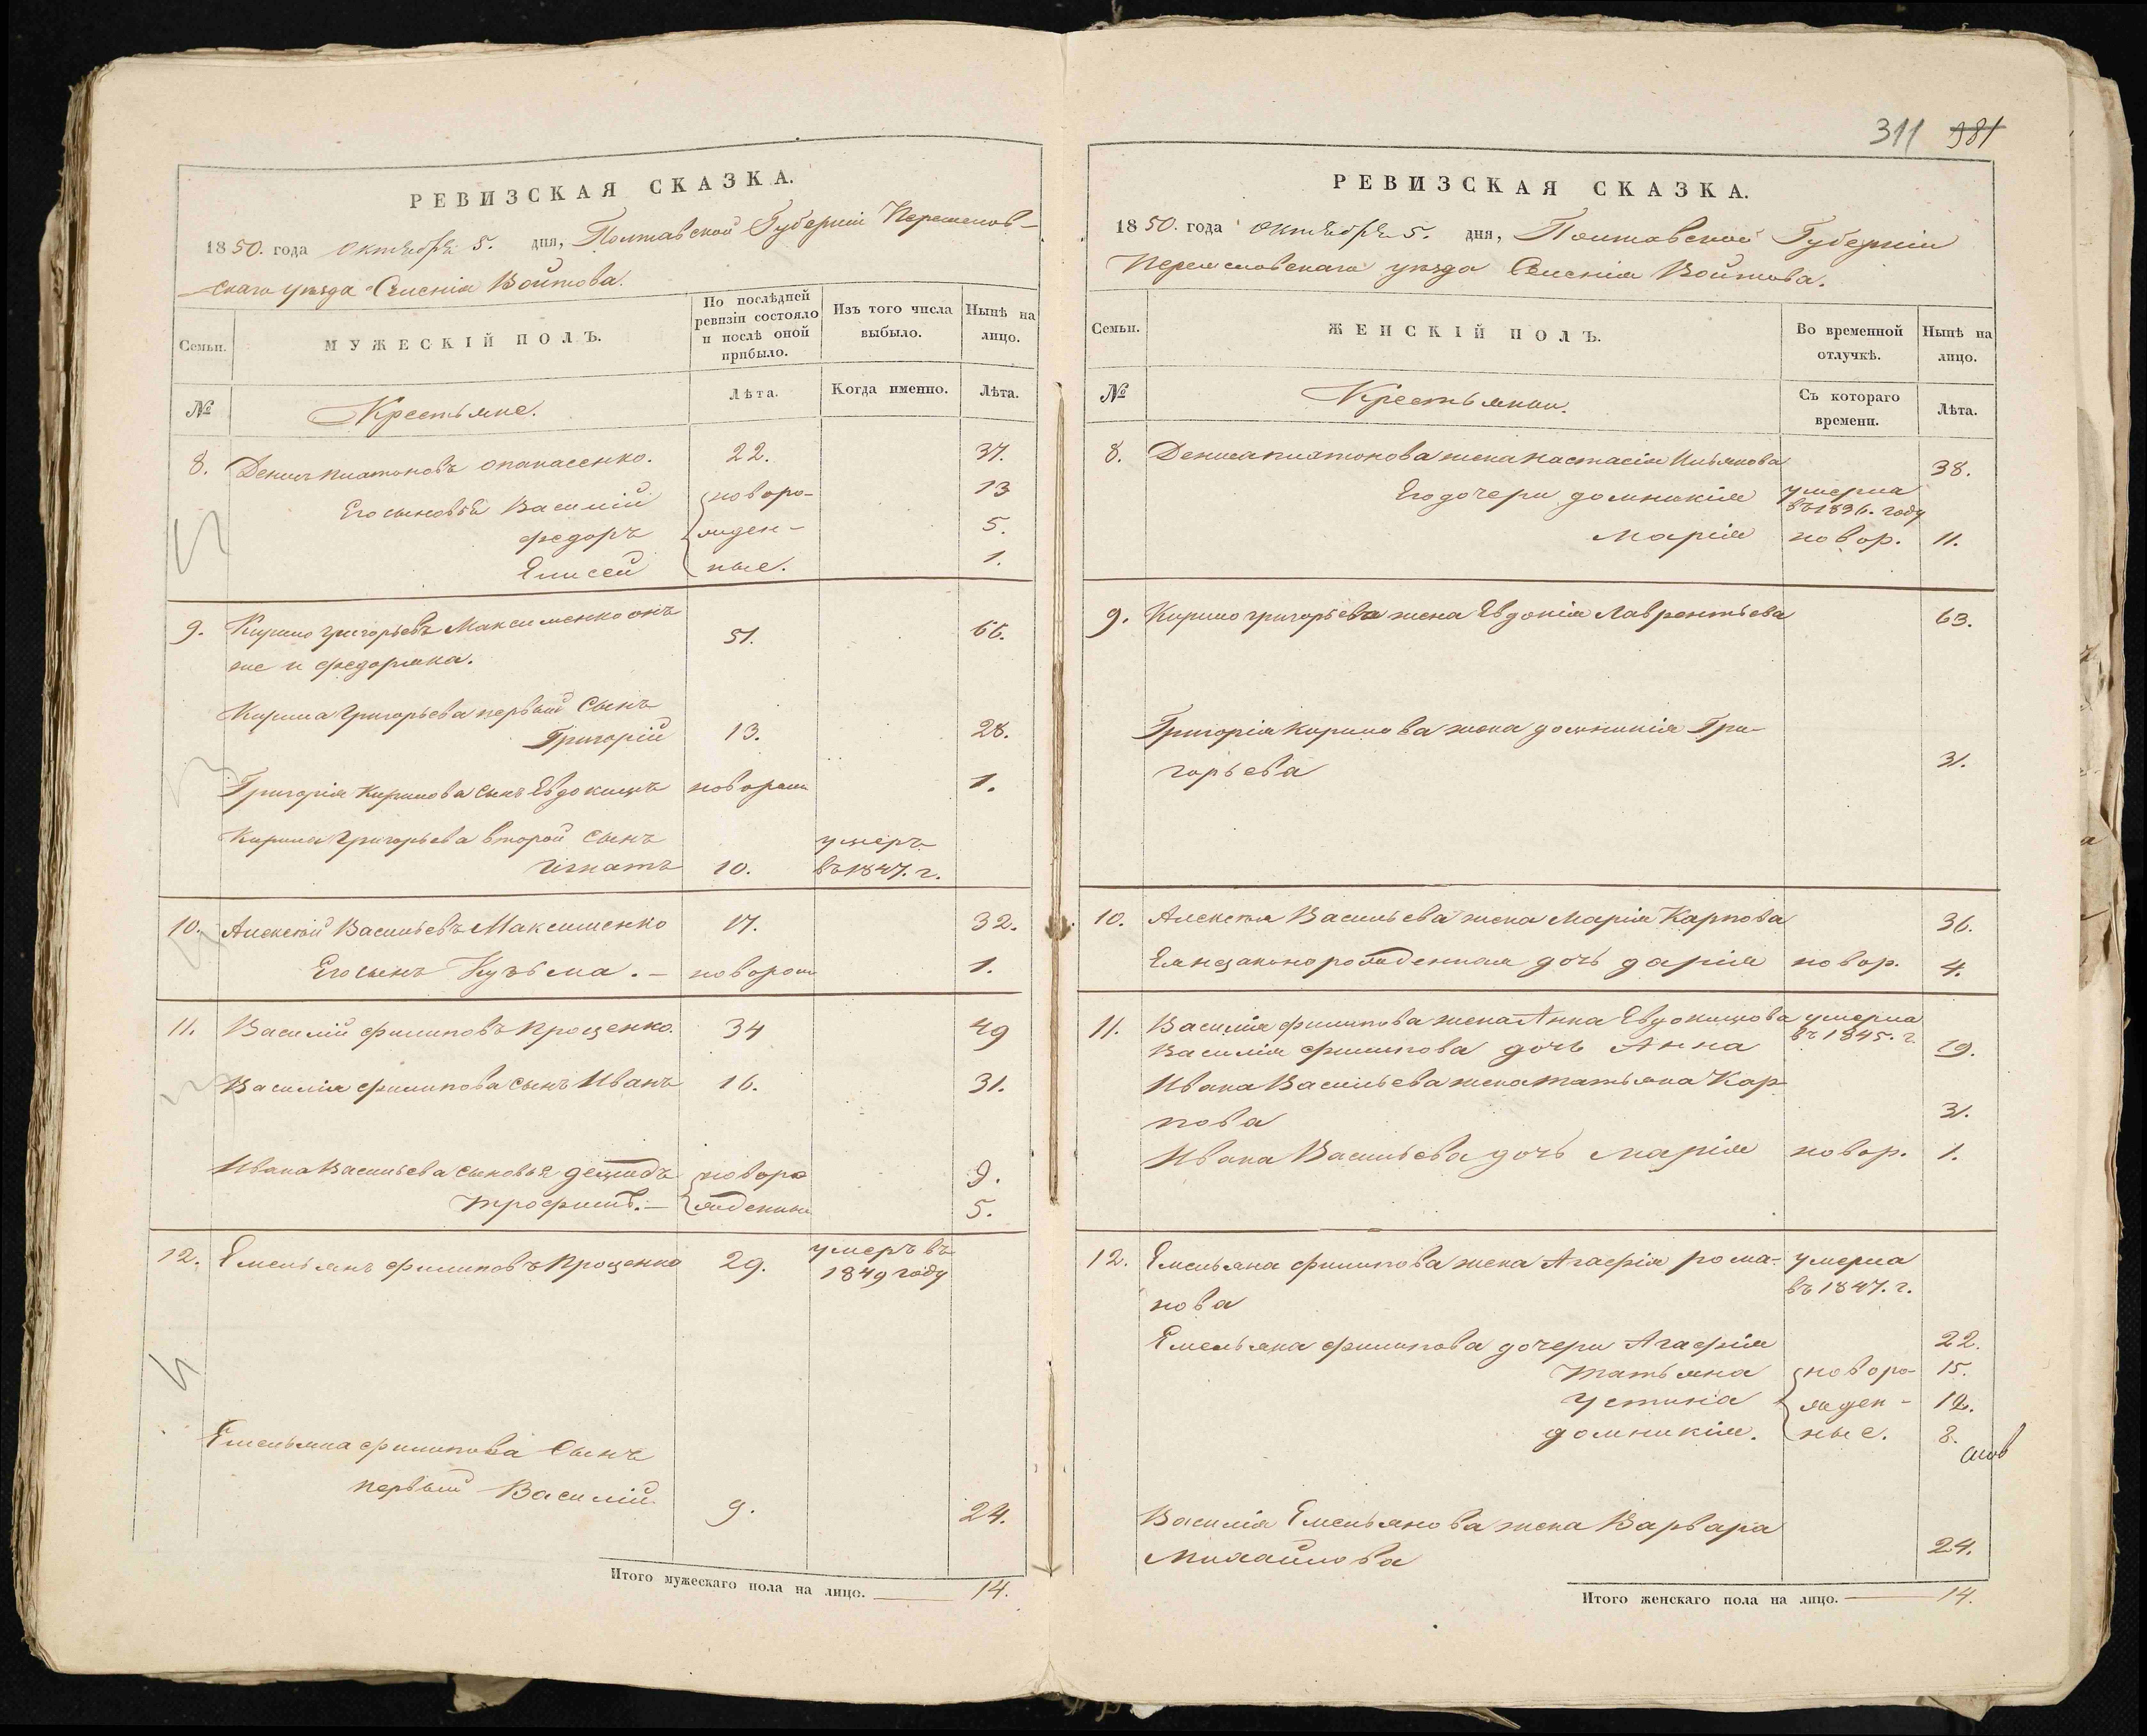 РЕВИЗСКАЯ СКАЗКА.
1850. года Октября 5. дня, Полтавской Губерніи Переяслов-
скаго уѣзда Селенія Войтова.
Семьи.
МУЖЕСКІЙ ПОЛЪ.
По послѣдней ревизіи состояло и послѣ оной прибыло.
Изъ того числа выбыло.
Нынѣ на лицо.
№
Крестьяне.
Лѣта.
Когда именно.
Лѣта.
8. Денисъ Платоновъ Опанасенко. 22. 37.
Его сыновья Василій новоро- 13
Федоръ жден- 5.
Елисей ные. 1.
9. Кирило Григорьевъ Максименко онъ 51. 66.
же и Федоряка.
Кирила Григорьева первый Сынъ
Григорій 13. 28.
Григорія Кирилова сынъ Евдокимъ новорож 1.
Кирила Григорьева второй сынъ умеръ
Игнатъ 10. въ 1847. г.
10. Алексѣй Васильевъ Максименко 17. 32.
Его сынъ Кузьма. – новорож 1.
11. Василій Филиповъ Проценко. 34 49
Василія Филипова сынъ Иванъ 16. 31.
Ивана Васильева сыновья Демидъ новоро 9.
Трофимъ. – жденные 5.
12. Емельянъ Филиповъ Проценко 29. умеръ въ
1849 году
Емельяна Филипова Сынъ
первый Василій 9. 24.
Итого мужескаго пола на лицо. 14.
311 981
РЕВИЗСКАЯ СКАЗКА.
1850. года Октября 5. дня, Полтавской Губерніи
Переясловскаго уѣзда Селенія Войтова.
Семьи.
ЖЕНСКІЙ ПОЛЪ.
Во временной отлучкѣ.
Нынѣ на лицо.
№
Крестьянки.
Съ котораго времени.
Лѣта.
8. Дениса Платонова жена Настасія Ильякова 38.
Его дочери Домникія умерла
въ 1836. году
Марія новор. 11.
9. Кирило Григорьева жена Евдокія Лаврентьева 63.
Григорія Кирилова жена Домникія Гри-
горьева 31.
10. Алексѣя Васильева жена Марія Карпова 36.
Ея незаконорожденная дочь Дарія новор. 4.
11. Василія Филипова жена Анна Евдокимова умерла
въ 1845. г
Василія Филипова дочь Анна 19.
Ивана Васильева жена Татьяна Кар-
пова 31.
Ивана Васильева дочь Марія новор. 1.
12. Емельяна Филипова жена Агафія Рома- умерла
нова въ 1847. г.
Емельяна Филипова дочери Агафія 22.
Татьяна новоро- 15.
Устина жден- 12.
Домникія. ные. 8.
Василія Емельянова жена Варвара
Михайлова 24.
Итого женскаго пола на лицо. 14.